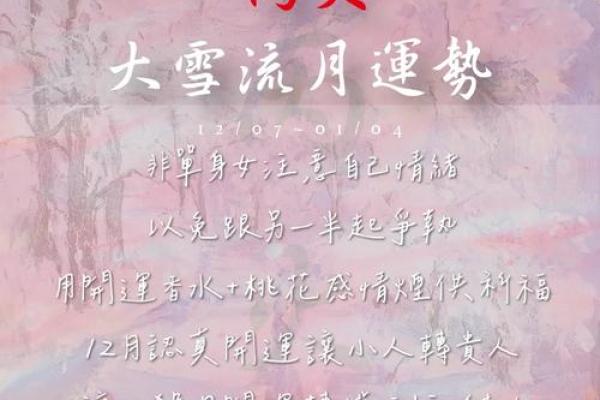 大雪流月運勢
12/07~01/04
非單身女注意自己情緒
以免跟另一半起爭執
用開運香水+桃花感情煙供祈福
12月認真開運讓小人轉貴人